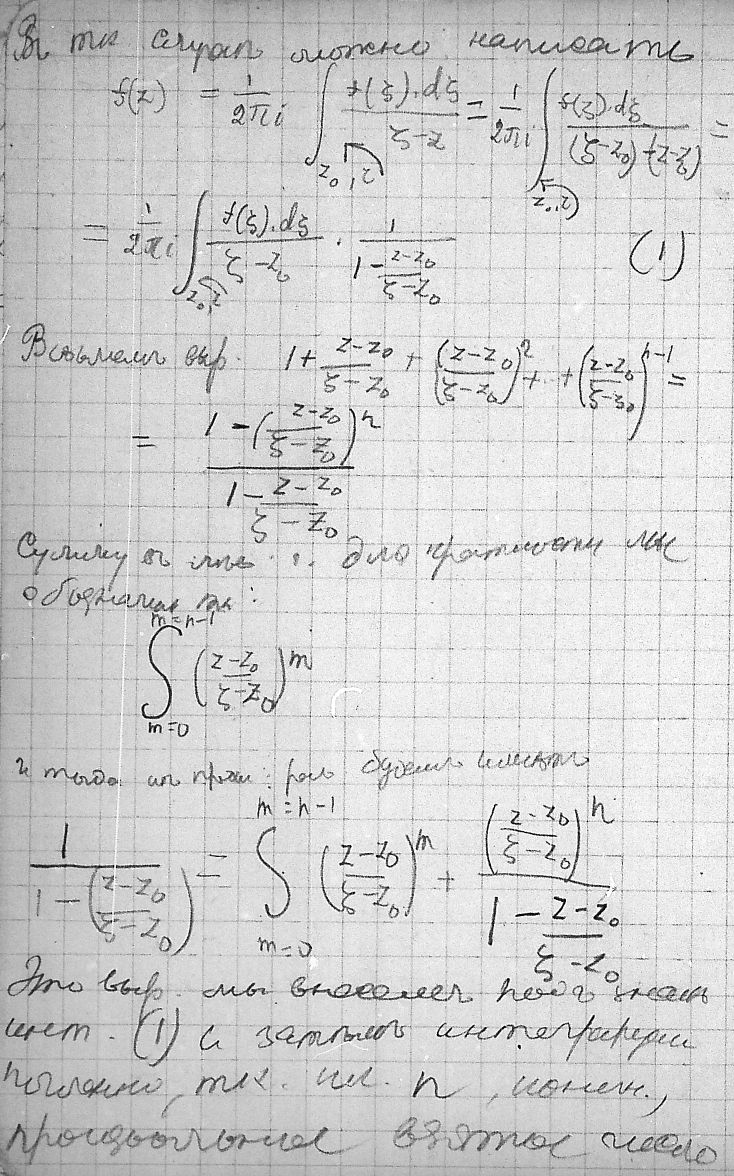 Въ тк случаѣ можно написать
f(z) = 1/2πi ∫ f(ξ).dξ/ξ-z = 1/2πi ∫ f(ξ).dξ/(ξ-z₀)-(z-ξ) =
z₀, z z₀, z
= 1/2πi ∫ f(ξ).dξ/ξ-z₀ . 1/1-(z-z₀/ξ-z₀) (1)
z₀, z
Возьмемъ выр. 1 + z-z₀/ξ-z₀ + (z-z₀/ξ-z₀)² + .. + (z-z₀/ξ-z₀)ⁿ⁻¹ =
= 1-(z-z₀/ξ-z₀)ⁿ / 1-z-z₀/ξ-z₀
Сумму въ для краткости мы
обозначимъ тк:
m=n-1
∫ (z-z₀/ξ-z₀)ᵐ
m=0
и тогда будемъ имѣть
m=n-1
1/1-(z-z₀/ξ-z₀) = ∫ (z-z₀/ξ-z₀)ᵐ + (z-z₀/ξ-z₀)ⁿ / 1-z-z₀/ξ-z₀
m=0
Это выр. мы внесемъ подъ знакъ
инт. (1) и затѣмъ интегрируем
почленно, тк. n, конечн.,
произвольное взятое число